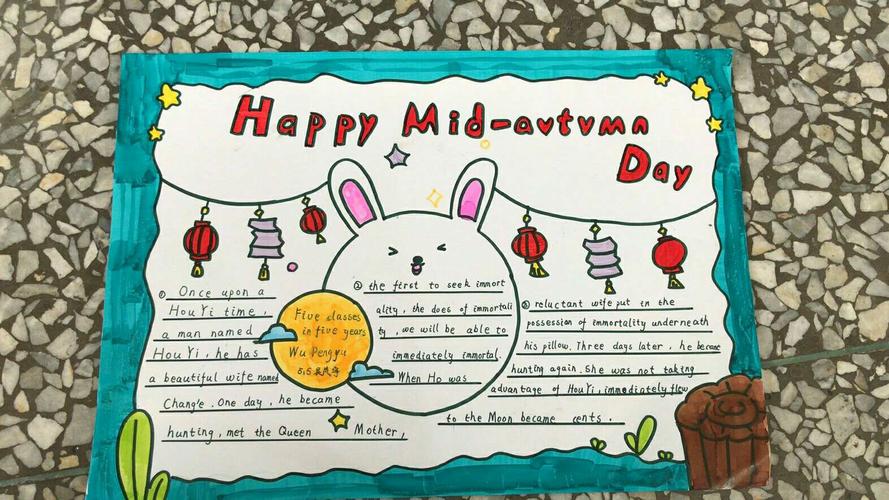 Happy Mid-avtvmn
Day
① Once upon a
HouYi time,
a man named
HouYi, he has
a beautiful wife named
Chang'e. One day, he became
hunting, met the Queen Mother,
Five classes
in five years
Wu Pengyu
② the first to seek immort
ality, the does of immortali
ty, we will be able to
immediately immortal.
When Ho was
③ reluctant wife put in the
possession of immortality underneath
his pillow. Three days later, he became
hunting again. She was not taking
advantage of HouYi, immediately flew
to the Moon became cents.